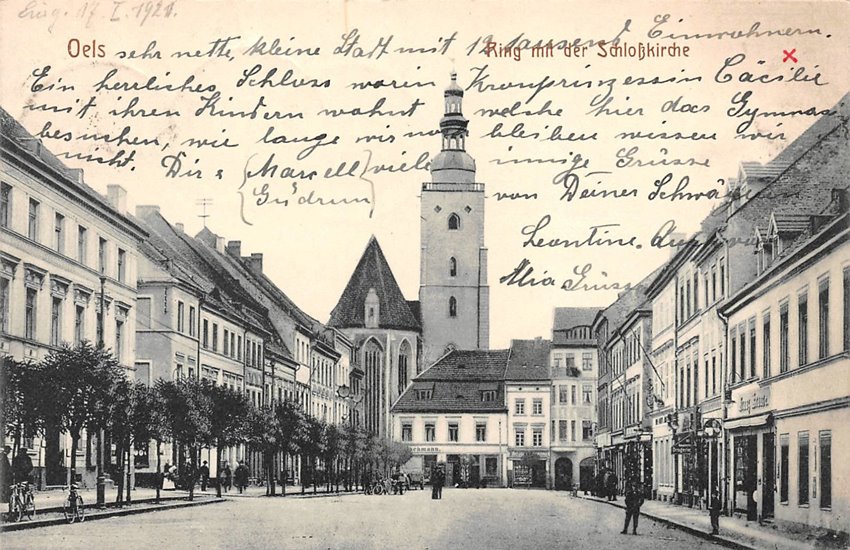 17. I. 1921.
Oels
Ring mit der Schloßkirche
sehr nette, kleine Stadt mit 12 tausend Einwohnern.
Ein herrliches Schloss worin Kronprinzessin Cäcilie
mit ihren Kindern wohnt welche hier das Gymnas
besuchen, wie lange wir noch bleiben wissen wir
nicht. Dir & Marcell viele innige Grüsse
Gudrun
von Deiner Schwä
Leontine. Auch von
Mia Grüsse
chmann.